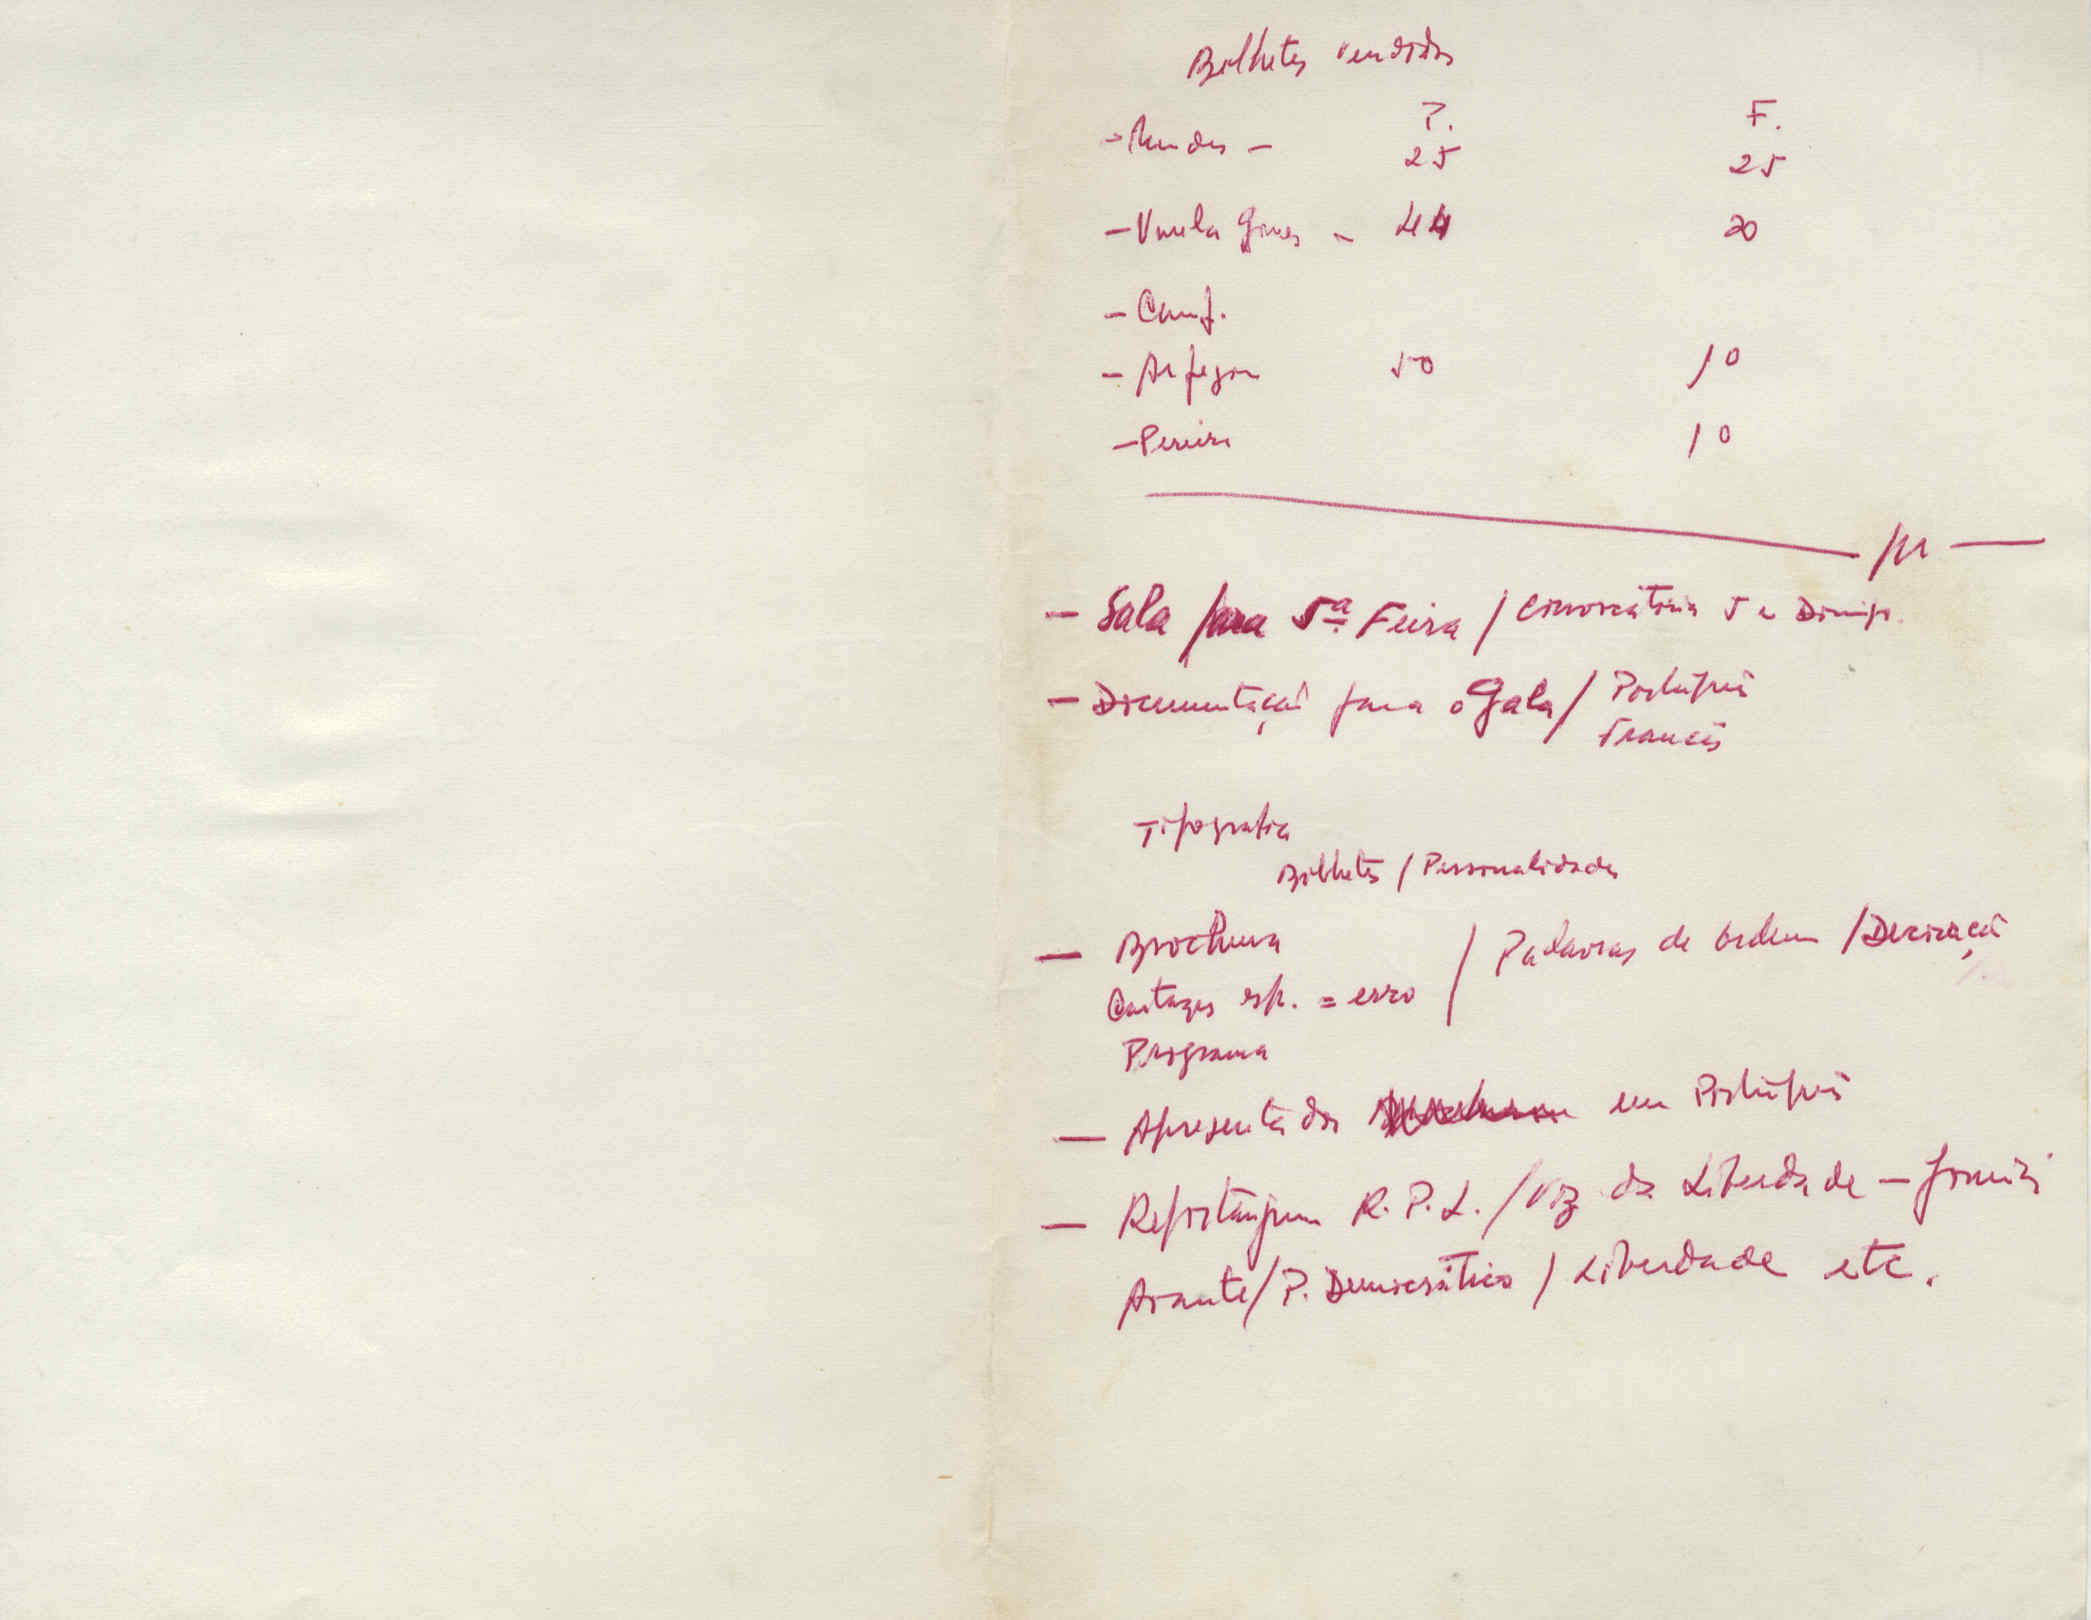 Bilhetes vendidos
P. F.
- Mendes - 25 25
- Varela Gomes - 44 20
- Camf.
- 50 10
- Pereira 10
- Sala para 5ª Feira / Convocatória 5 e Domingo.
- Documentação para o Gala / Português
Francês
Tipografia
Bilhetes / Personalidades
- Brochura / Palavras de ordem / Decoração
Cartazes esp. = erro
Programa
- Apresentador em Português
- Reportagem R. P. L. / Voz da Liberdade -
Avante / P. Democrático / Liberdade etc.